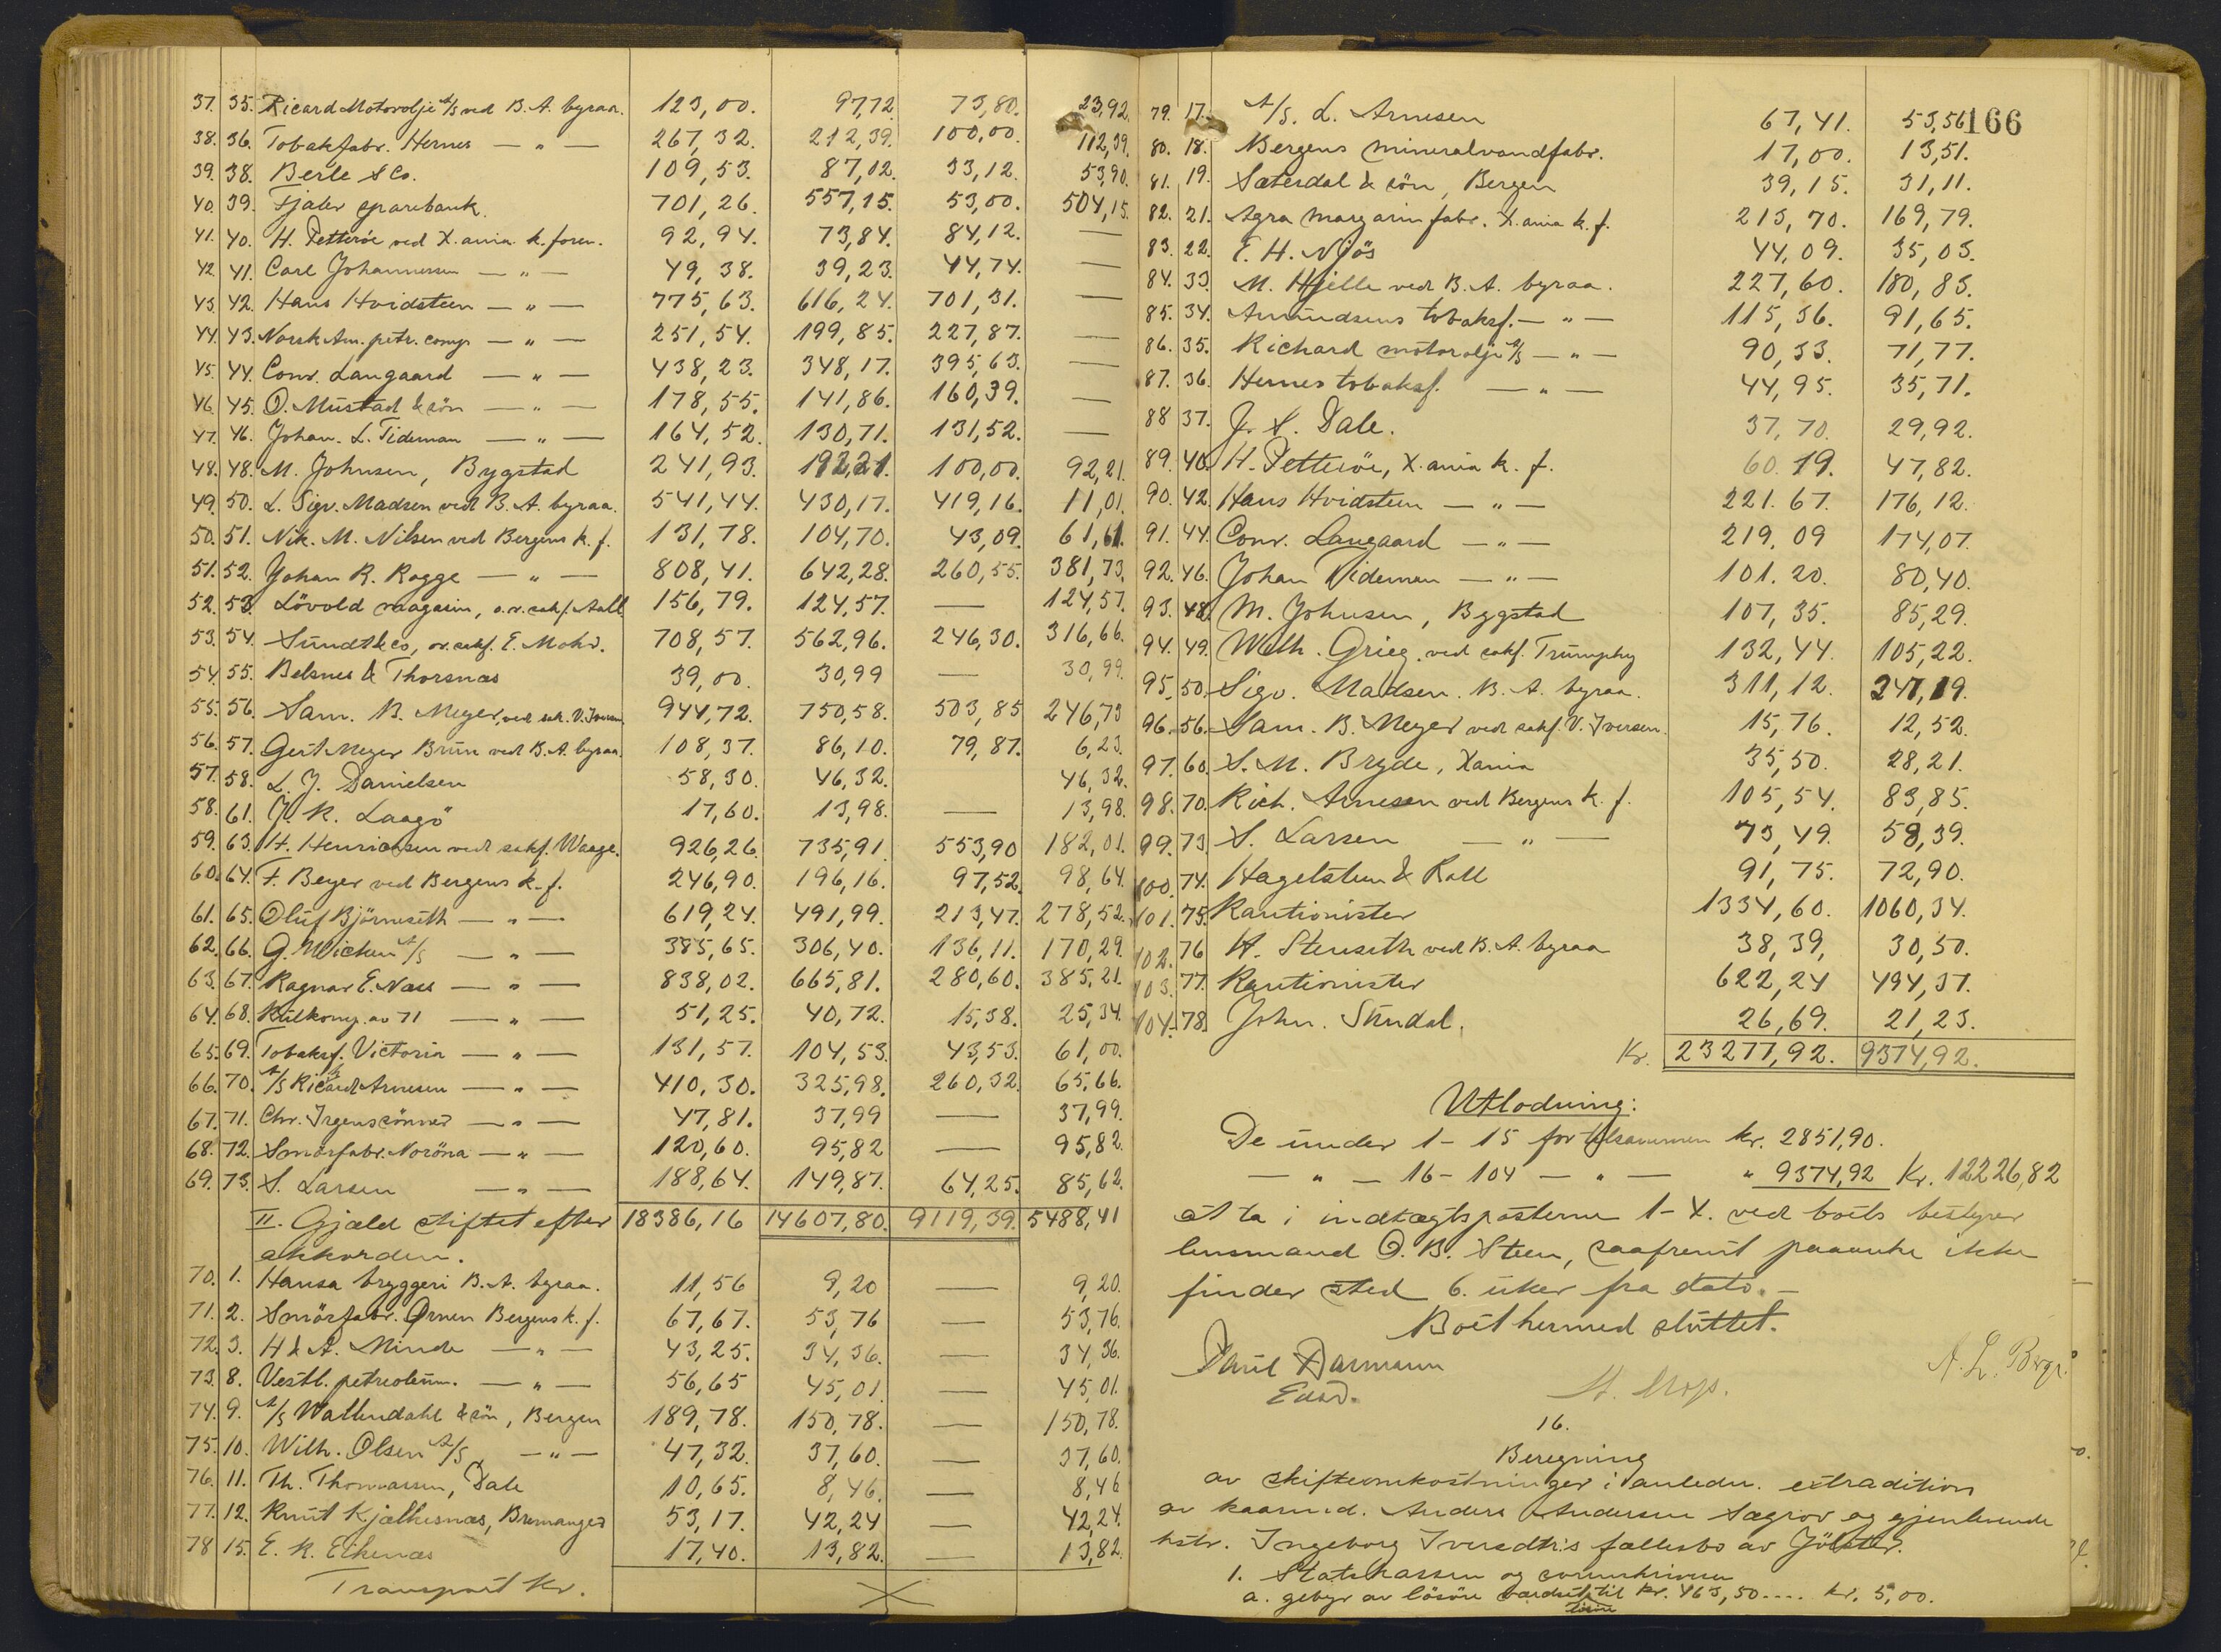 37. 35. Ricard Motorolje A/S ved B. A. byraa. 123,00. 97,72 73,80. 23,92.
38. 36. Tobakfabr. Hernes — " — 267,32. 212,39. 100,00. 112,39.
39. 38. Berle & Co. 109,53. 87,02. 33,12. 53,90.
40. 39. Fjaler sparebank. 701,26. 557,15. 53,00. 504,15.
41. 40. H. Petterøe ved X.ania k. foren. 92,94. 73,84. 84,12. —
42. 41. Carl Johannessen — " — 49,38. 39,23. 44,74. —
43. 42. Hans Hvidsteen — " — 775,63. 616,24. 701,31. —
44. 43. Norsk Am. petr. comp. — " — 251,54. 199,85. 227,87. —
45. 44. Conr. Langaard — " — 438,23. 348,17. 395,63. —
46. 45. O. Mustad & sön — " — 178,55. 141,86. 160,39. —
47. 46. Johan. L. Tideman — " — 164,52. 130,71. 131,52. —
48. 48. M. Johnsen, Bygstad 241,93. 192,21. 100,00. 92,21
49. 50. L. Sigv. Madsen ved B. A. byraa. 541,44. 430,17. 419,16. 11,01.
50. 51. Nik. M. Nilsen ved Bergens k. f. 131,78. 104,70. 43,09. 61,61.
51. 52. Johan R. Rogge — " — 808,41. 642,28. 260,55. 381,73.
52. 53. Lövold magasin, o.r. sakf. Aall 156,79. 124,57. — 124,57.
53. 54. Sundt & Co, or. sakf. E. Mohr. 708,57. 562,96. 246,30. 316,66.
54. 55. Belsnes & Thorsnæs 39,00. 30,99 — 30,99.
55. 56. Sam. B. Meyer, ved sak. V. Iversen 944,72. 750,58. 503,85 246,73
56. 57. Gert Meyer Brun ved B. A. byraa. 108,37. 86,10. 79,87. 6,23.
57. 58. L. J. Danielsen 58,30. 46,32. 46,32.
58. 61. J. K. Laagö 17,60. 13,98. — 13,98.
59. 63. H. Henricksen ved sakf. Waage. 926,26. 735,91. 553,90 182,01.
60. 64. F. Beyer ved Bergens k. f. 246,90. 196,16. 97,52. 98,64.
61. 65. Oluf Björneseth — " — 619,24. 491,99. 213,47. 278,52.
62. 66. G. Wicken A/S — " — 385,65. 306,40. 136,11. 170,29.
63. 67. Ragnar E. Næss — " — 838,02. 665,81. 280,60. 385,21.
64. 68. Kulkomp. av 71 — " — 51,25. 40,72. 15,38. 25,34.
65. 69. Tobaksf. Victoria — " — 131,57. 104,53. 43,53. 61,00.
66. 70. A/S Ricard Arnesen — " — 410,30. 325,98. 260,32. 65,66.
67. 71. Chr. Irgens sönner — " — 47,81. 37,99 — 37,99.
68. 72. Smörfabr. Noröna — " — 120,60. 95,82 — 95,82.
69. 73. S. Larsen — " — 188,64. 149,87. 64,25. 85,62.
II. Gjæld stiftet efter 18386,16 14607,80. 9119,39. 5488,41
akkorden.
70. 1. Hansa bryggeri B. A. byraa. 11,56 9,20 — 9,20.
71. 2. Smörfabr. Ørnen Bergens k. f. 67,67. 53,76 — 53,76.
72. 3. H & A. Minde — " — 43,25. 34,36. — 34,36.
73. 8. Vestl. petroleum. — " — 56,65 45,01. — 45,01.
74. 9. A/S Wallendahl & sön, Bergen 189,78. 150,78. — 150,78.
75. 10. Wilh. Olsen A/S — " — 47,32. 37,60. — 37,60.
76. 11. Th. Thomassen, Dale 10,65. 8,46. — 8,46
77. 12. Knut Kjølhesnæs, Bremanger 53,17. 42,24 — 42,24.
78 15. E. K. Eikenæs 17,40. 13,82. — 13,82.
Transport Kr.
166
79. 17. A/S. L. Arnesen 67,41. 53,56
80. 18. Bergens mineralvandfabr. 17,00. 13,51.
81. 19. Sætersdal & sön, Bergen 39,15. 31,11.
82. 21. Agra margarinfabr. X.ania k. f. 213,70. 169,79.
83. 22. E. H. Njös 44,09. 35,03.
84. 33. M. Hjelle ved B. A. byraa. 227,60. 180,83.
85. 34. Amundsens tobaksf. — " — 115,36. 91,65.
86. 35. Richard motorolje A/S — " — 90,33. 71,77.
87. 36. Hernes tobaksf. — " — 44,95. 35,71.
88 37. J. S. Dale. 37,70. 29,92.
89. 40. H. Petterøe, X.ania k. f. 60.19. 47,82.
90. 42. Hans Hvidsteen — " — 221.67. 176,12.
91. 44. Conr. Langaard — " — 219,09 174,07.
92. 46. Johan Tideman — " — 101.20. 80,40.
93. 48. M. Johnsen, Bygstad 107,35. 85,29.
94. 49. Wilh. Grieg, ved sakf. Trumphy 132,44. 105,22.
95. 50. Sigv. Madsen. B. A. byraa. 311,12. 247,19.
96. 56. Sam. B. Meyer ved sakf. V. Iversen. 15,76. 12,52.
97. 60. S. M. Bryde, Xania 35,50. 28,21.
98. 70. Rich. Arnesen ved Bergens k. f. 105,54. 83,85.
99. 73. S. Larsen — " — 73,49. 58,39.
100. 74. Hagelsteen & Roll 91,75. 72,90.
101. 75. Kautionister 1334,60. 1060,34.
102. 76 K. Stenseth ved B. A. byraa 38,39, 30,50.
103. 77. Kautionister 622,24 494,37.
104. 78. John. Sundal. 26,69. 21,23.
Kr. 23277,92. 9374,92.
Utlodning:
De under 1-15 før tilsammen kr. 2851,90.
— " — 16-104 — " — " 9374,92 Kr. 12226,82
at ta i indtægtsposterne 1-X. ved boets bestyrer
lensmand O. B. Steen, saafremt paaanke ikke
finder sted 6. uker fra dato. —
Boet hermed sluttet.
Paul Darmann
Edsv.
16.
Beregning
av skifteomkostninger i anledn. extradition
av kaarmd. Anders Andersen Sægrov og gjenlevende
hstr. Ingeborg Iversdtr.s fællesbo av Jölster.
1. Statskassen og sorenskriveren
a. gebyr av lösöre værdsat til kr. 463,50.... kr. 5,00.
lösöre